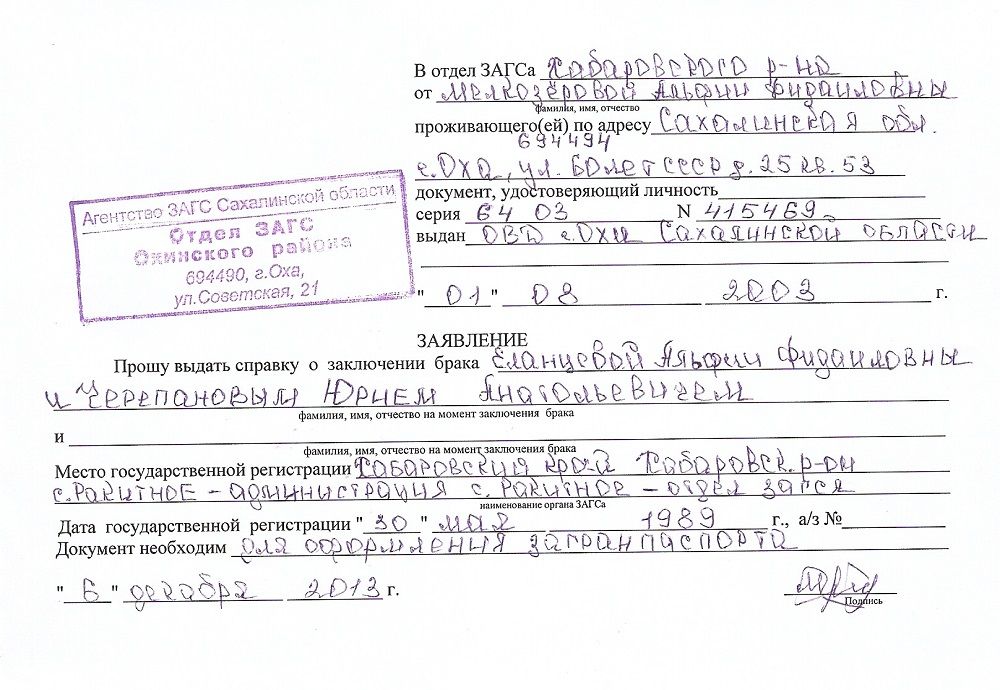 В отдел ЗАГСа Хабаровского р-на
от Мелкозёровой Альфии Фидаиловны
фамилия, имя, отчество
проживающего(ей) по адресу Сахалинская обл.
694494
г. Оха, ул. 60 лет СССР д. 25 кв. 53
документ, удостоверяющий личность
серия 64 03 N 415469
выдан ОВД г. Охи Сахалинской области
Агентство ЗАГС Сахалинской области
Отдел ЗАГС
Охинского района
694490, г.Оха,
ул.Советская, 21
" 01 " 08 2003 г.
ЗАЯВЛЕНИЕ
Прошу выдать справку о заключении брака Еланцевой Альфии Фидаиловны
и Черепановым Юрием Анатольевичем
фамилия, имя, отчество на момент заключения брака
и
фамилия, имя, отчество на момент заключения брака
Место государственной регистрации Хабаровский край Хабаровск. р-он
с. Ракитное - администрация с. Ракитное - отдел загса
наименование органа ЗАГСа
Дата государственной регистрации " 30 " мая 1989 г., а/з №
Документ необходим для оформления загранпаспорта
" 6 " декабря 2013 г.
Подпись